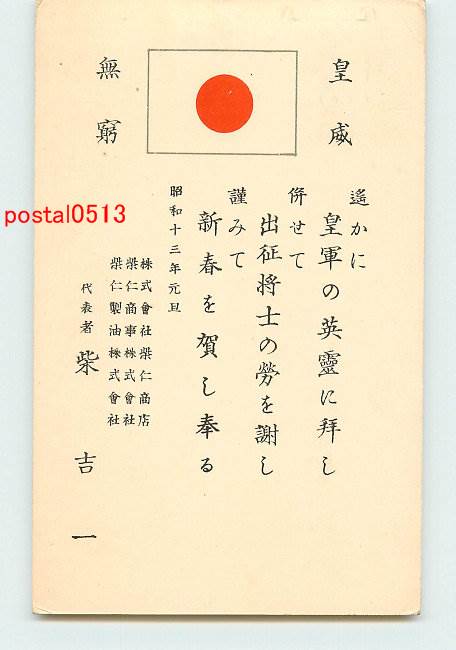 皇威
無窮
遙かに
皇軍の英靈に拜し
併せて
出征將士の勞を謝し
謹みて
新春を賀し奉る
昭和十三年元旦
株式會社柴仁商店
柴仁商事株式會社
柴仁製油株式會社
代表者 柴吉一
postal0513